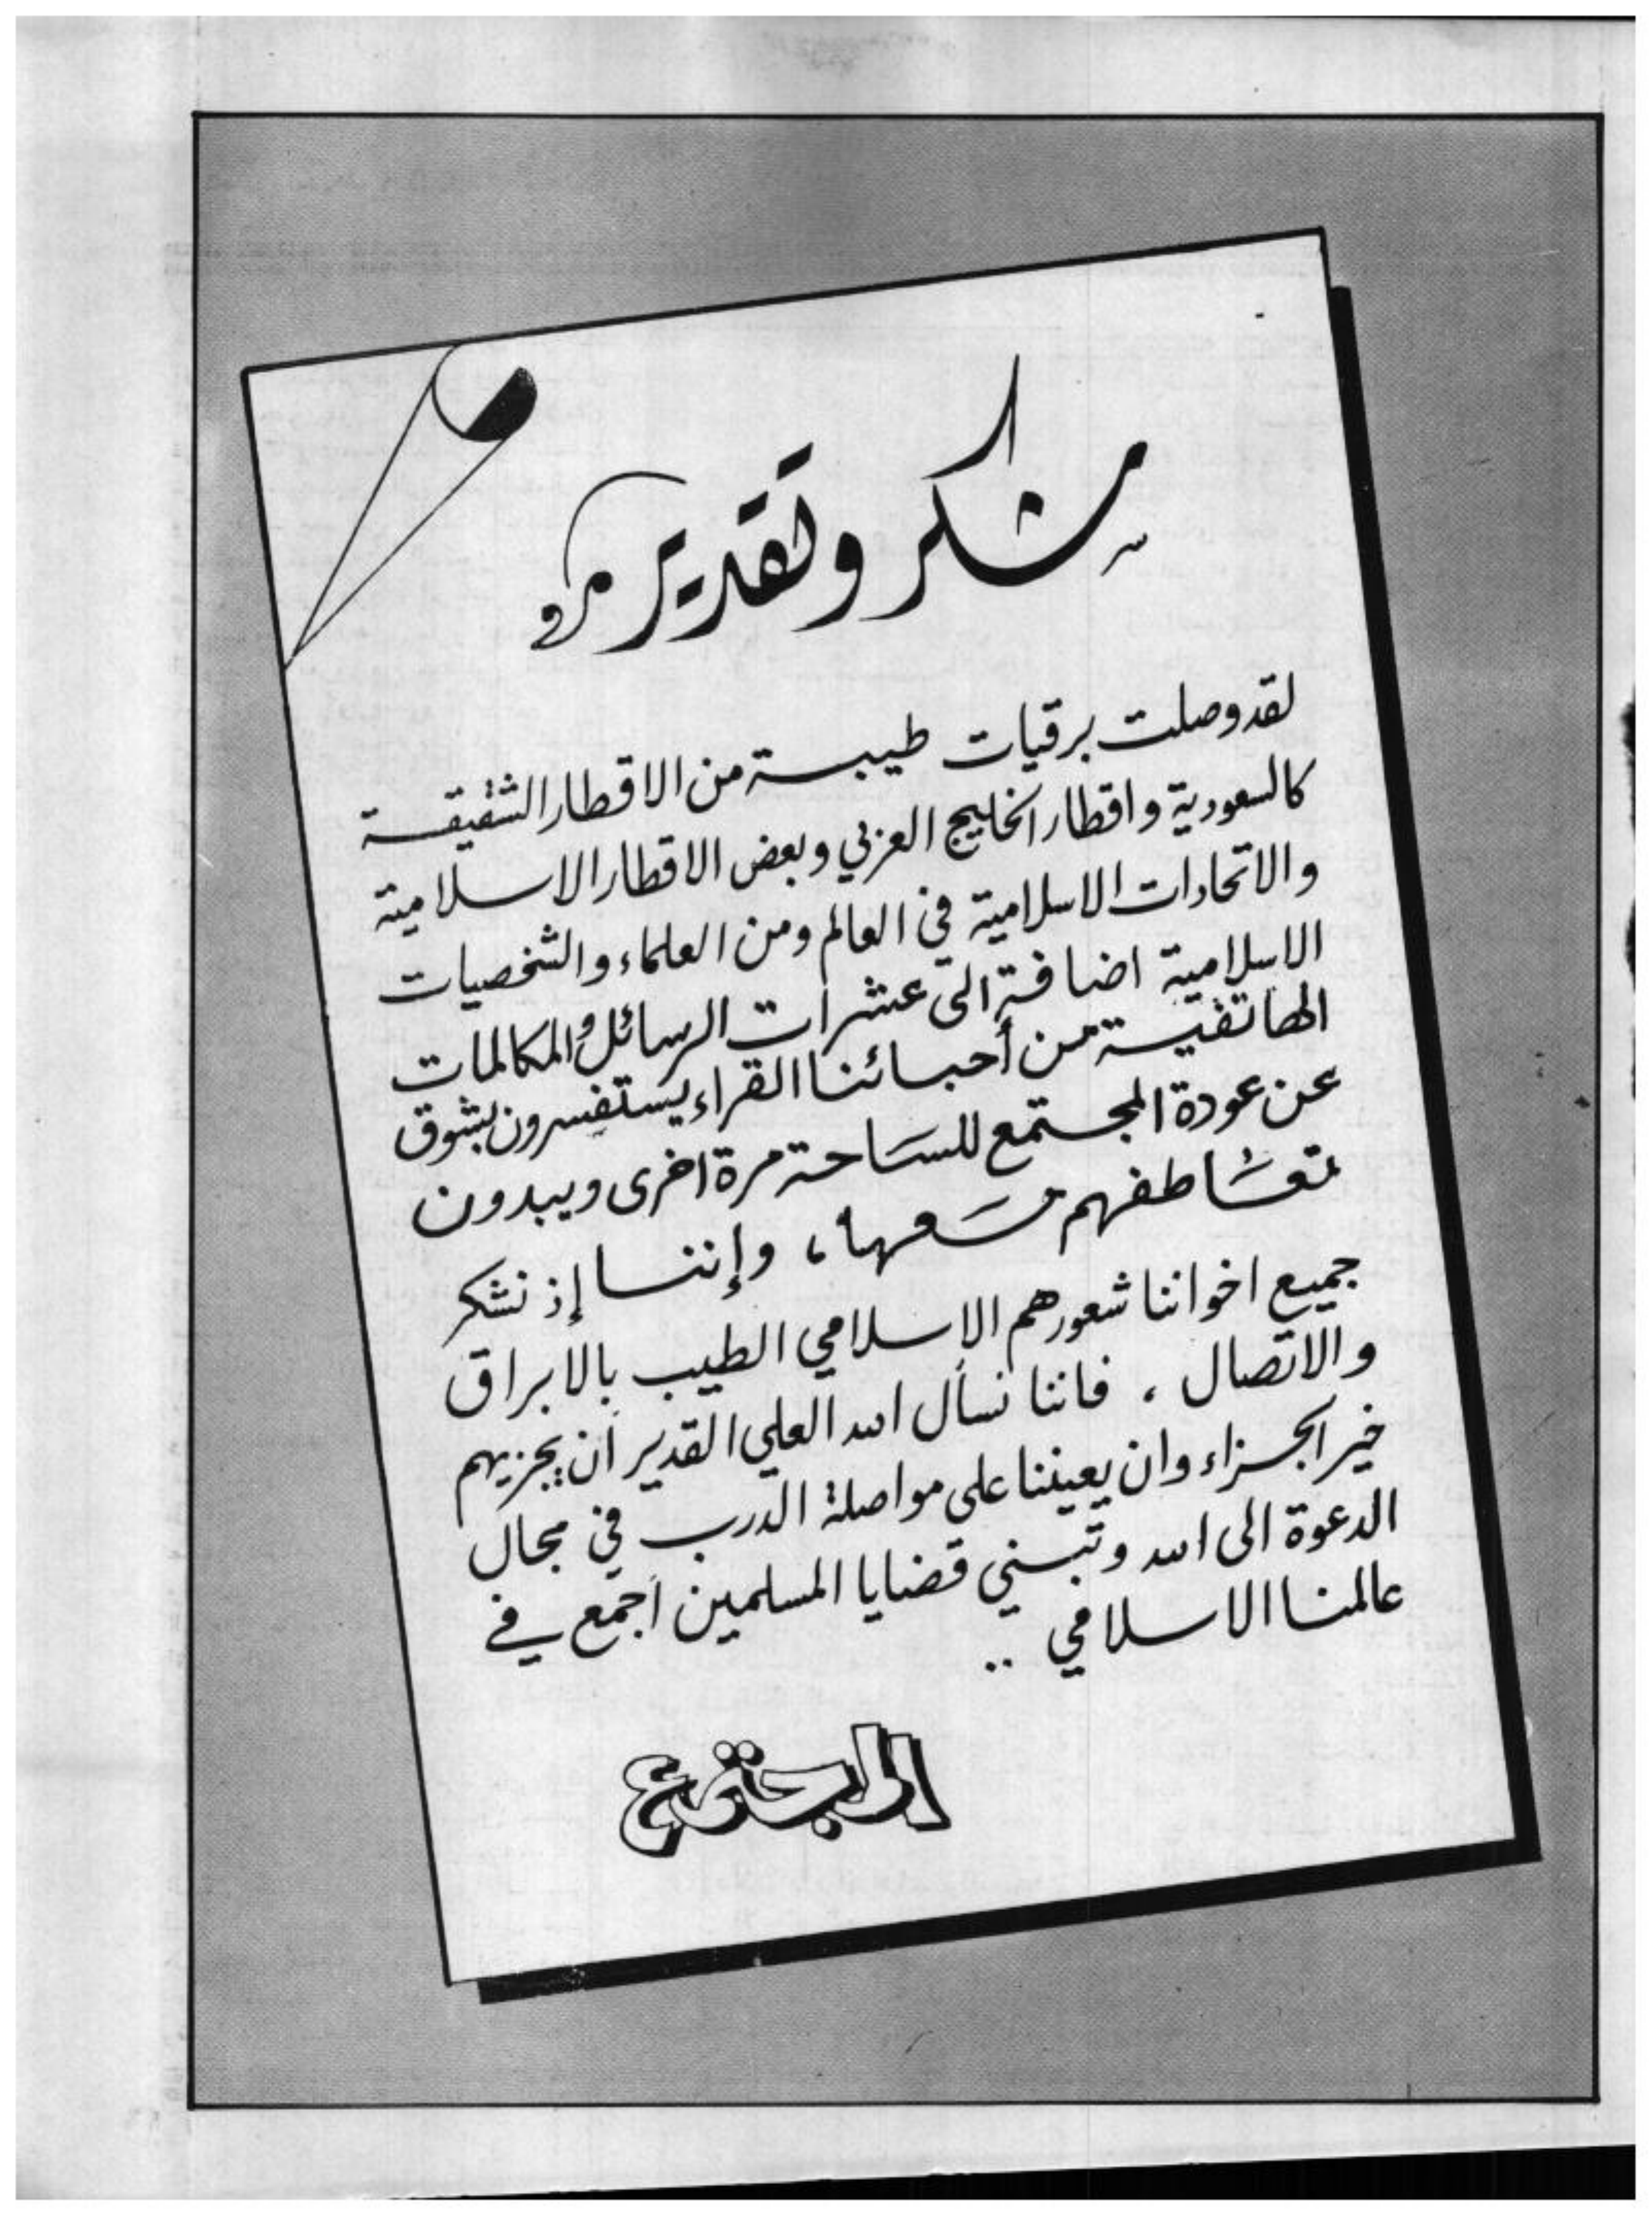 شكر وتقدير
لقد وصلت برقيات طيبة من الاقطار الشقيقة
كالسعودية واقطار الخليج العربي وبعض الاقطار الاسلامية
والاتحادات الاسلامية في العالم ومن العلماء والشخصيات
الاسلامية اضافة الى عشرات الرسائل والمكالمات
الهاتفية من أحبائنا القراء يستفسرون بشوق
عن عودة المجتمع للساحة مرة اخرى ويبدون
تعاطفهم معها ، وإننا إذ نشكر
جميع اخواننا شعورهم الاسلامي الطيب بالابراق
والاتصال ، فاننا نسأل الله العلي القدير أن يجزيهم
خير الجزاء وان يعيننا على مواصلة الدرب في مجال
الدعوة الى الله وتبني قضايا المسلمين أجمع في
عالمنا الاسلامي ..
المجتمع